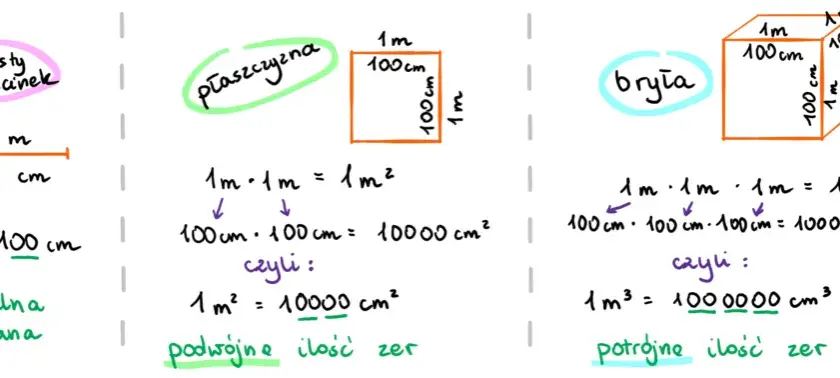 m
cm
100 cm
płaszczyzna
1m
100cm
100cm
1m
1m · 1m = 1m²
100cm · 100cm = 10000 cm²
czyli:
1m² = 10000 cm²
podwójne ilość zer
bryła
1m
100cm
100cm
1m
1m · 1m · 1m = 1
100cm · 100cm · 100cm = 1000
czyli:
1m³ = 1000000 cm³
potrójne ilość zer